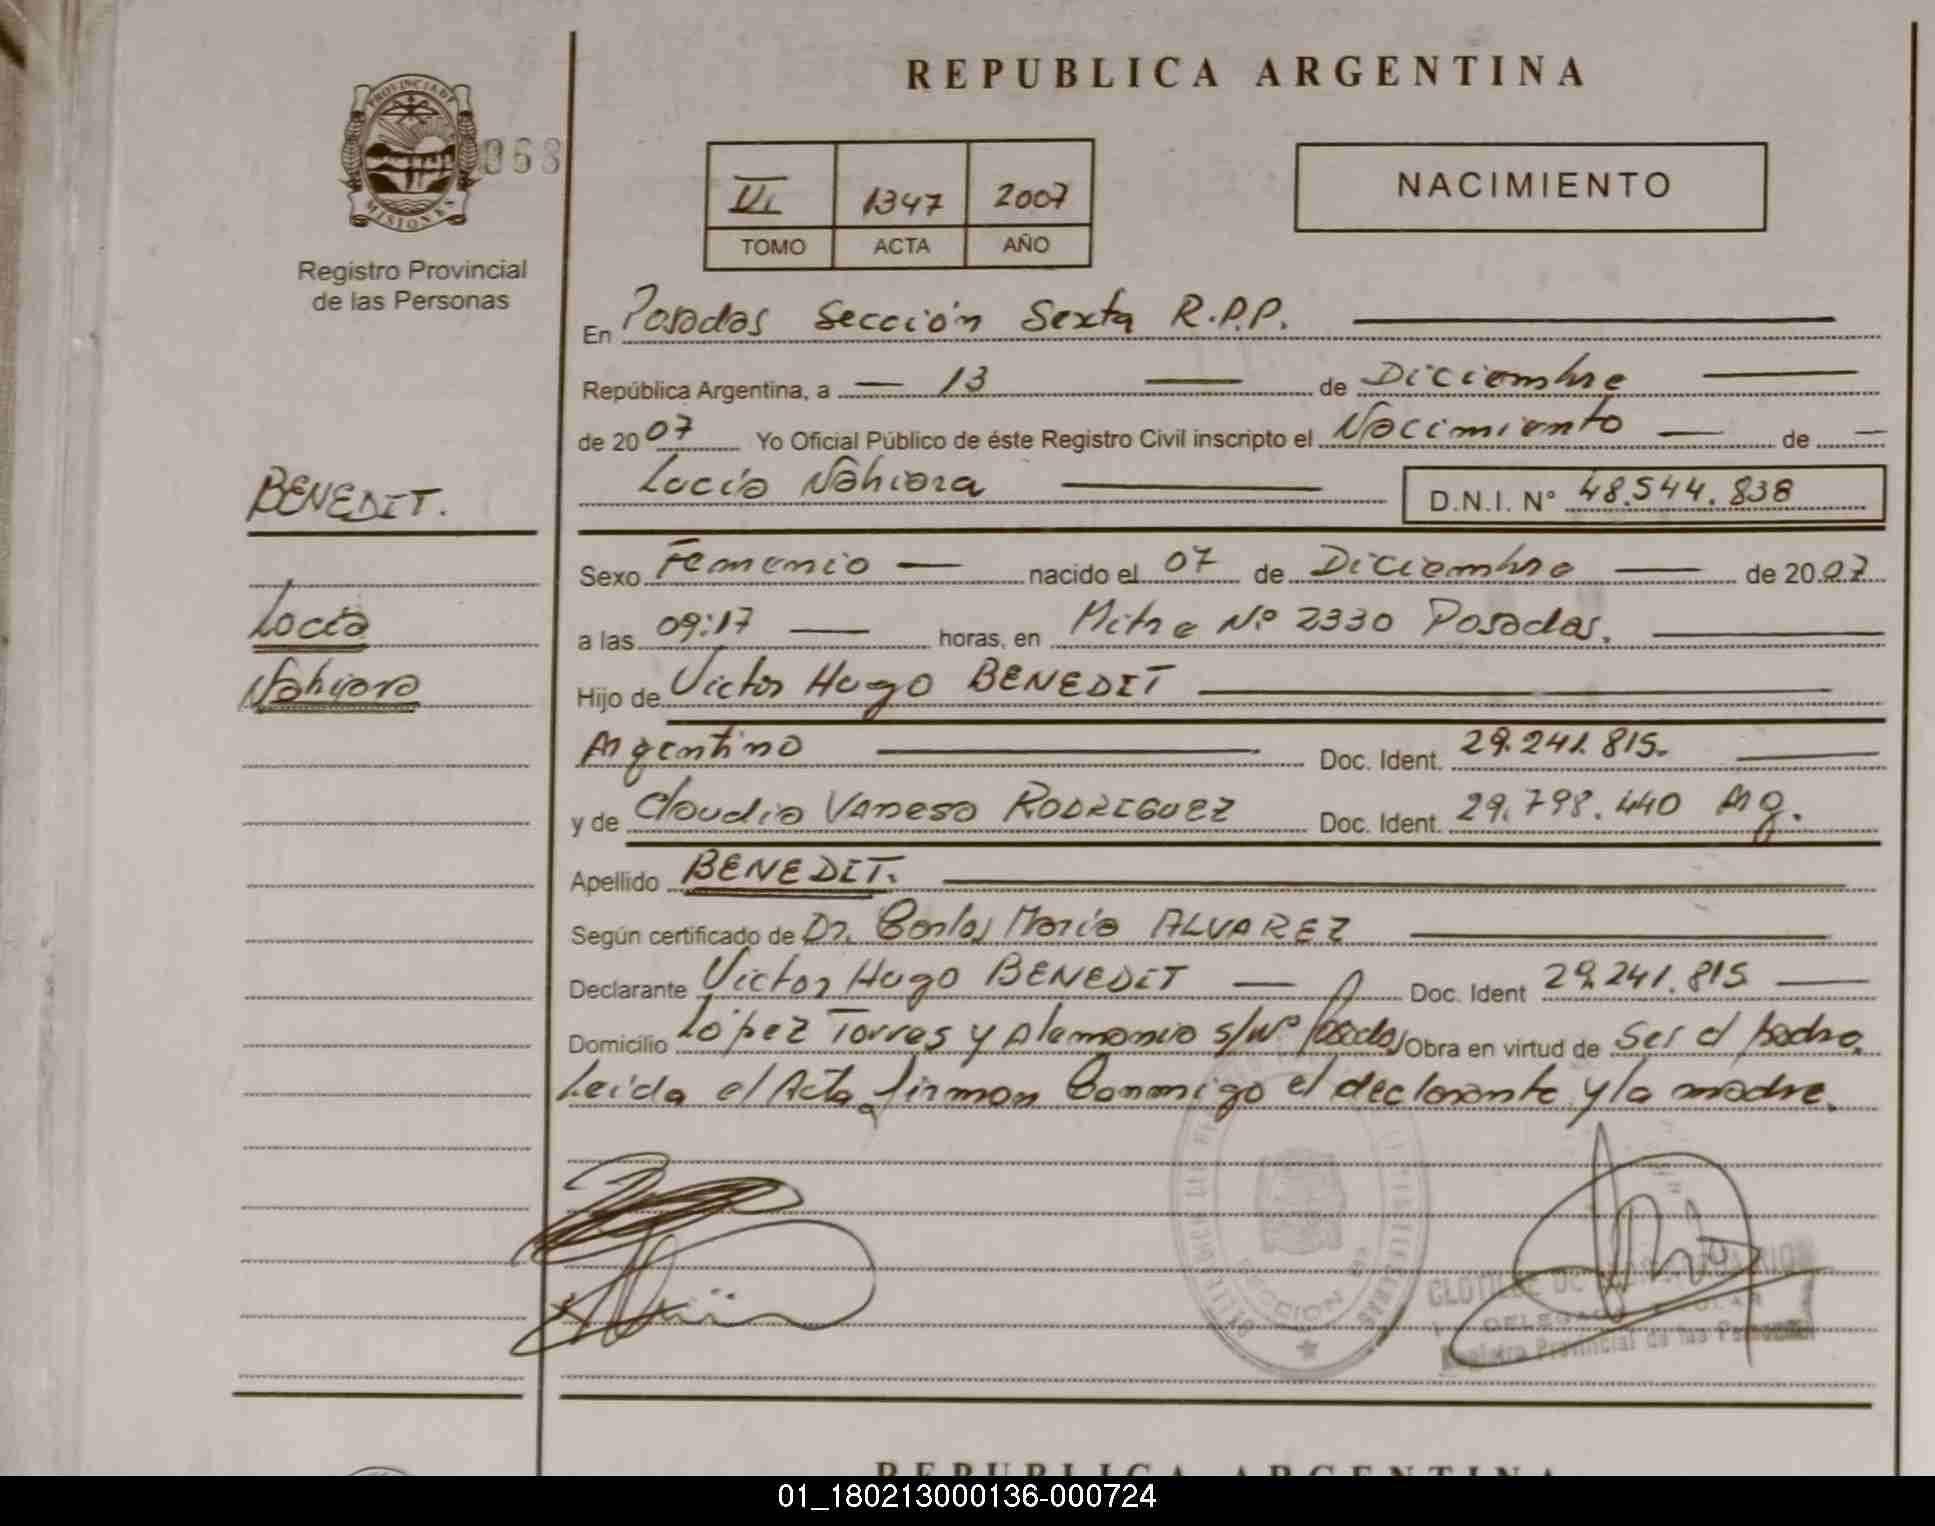 REPUBLICA ARGENTINA
PROVINCIA DE
MISIONES
068
Registro Provincial
de las Personas
VI 1347 2007
TOMO ACTA AÑO
NACIMIENTO
En Posadas Sección Sexta R.P.P.
República Argentina, a 13 de Diciembre
de 2007 Yo Oficial Público de éste Registro Civil inscripto el Nacimiento de
Lucía Nahiara D.N.I. Nº 48.544.838
BENEDIT.
Lucía
Nahiara
Sexo Femenio nacido el 07 de Diciembre de 2007
a las 09:17 horas, en Mitre Nº 2330 Posadas.
Hijo de Victor Hugo BENEDIT
Argentino Doc. Ident. 29.241.815.
y de Claudia VANESA RODRIGUEZ Doc. Ident. 29.798.440 Arg.
Apellido BENEDIT.
Según certificado de Dr. Carlos María ALVAREZ
Declarante Victor Hugo BENEDIT Doc. Ident 29.241.815
Domicilio López Torres y Alemania s/Nº Posadas Obra en virtud de ser el padre.
Leida el Acta, firman Conmigo el declarante y la madre.
Registro Provincial de las Personas
REPUBLICA ARGENTINA
01_180213000136-000724